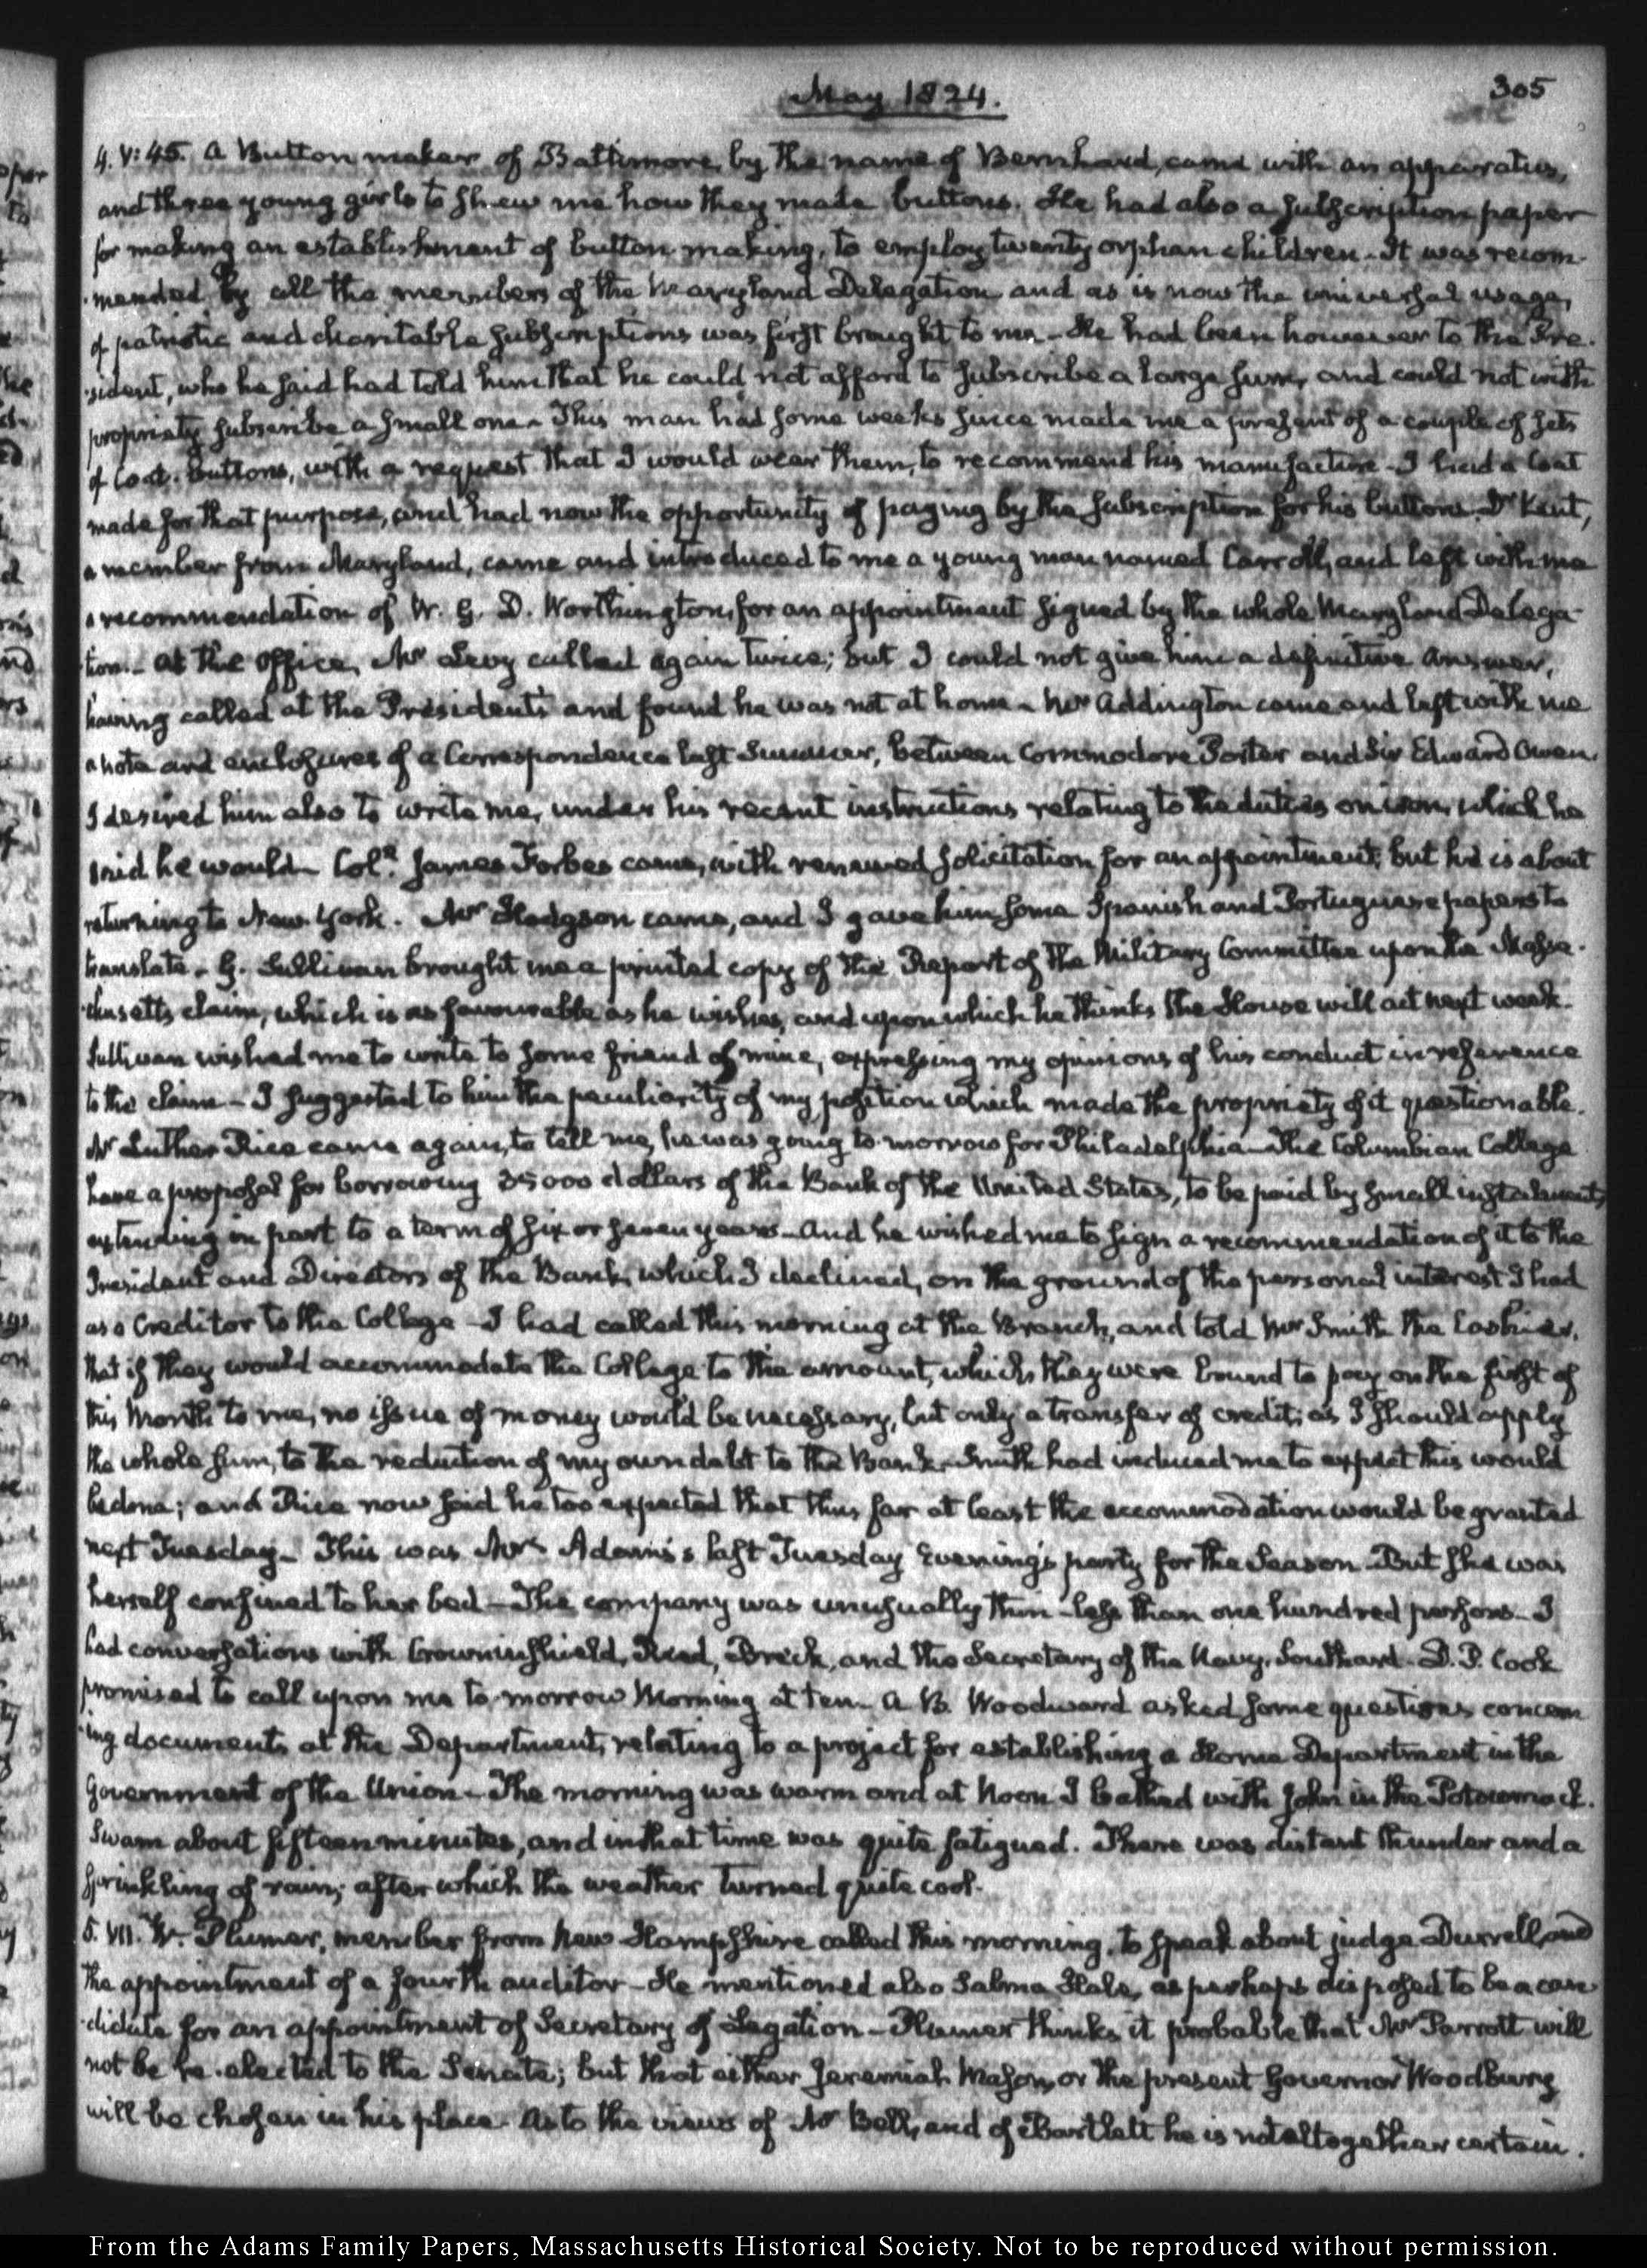 May 1824.
305
4. V:45. A Button maker of Baltimore by the name of Bernhard, came with an apparatus,
and three young girls to shew me how they made buttons. He had also a subscription paper
for making an establishment of button making, to employ twenty orphan children. It was recom-
mended by all the members of the Maryland Delegation and as is now the universal usage,
of patriotic and charitable subscriptions was first brought to me. He had been however to the Pre-
sident, who he said had told him that he could not afford to subscribe a large sum, and could not with
propriety subscribe a small one. This man had some weeks since made me a present of a couple of sets
of Coat. buttons, with a request that I would wear them, to recommend his manufacture. I had a Coat
made for that purpose, and had now the opportunity of paying by the subscription for his buttons. Dr. Kent,
a member from Maryland, came and introduced to me a young man named Carroll, and left with me
a recommendation of W. G. D. Worthington, for an appointment signed by the whole Maryland Delega-
tion. At the Office, Mr Levy called again twice; but I could not give him a definitive answer,
having called at the President's and found he was not at home. Mr Addington came and left with me
a note and enclosures of a Correspondence last Summer, between Commodore Porter and Sir Edward Owen.
I desired him also to write me, under his recent instructions relating to the duties on iron, which he
said he would. Coll. James Forbes came, with renewed solicitation for an appointment; but he is about
returning to New York. Mr Hodgson came, and I gave him some Spanish and Portuguese papers to
translate. G. Sullivan brought me a printed copy of the Report of the Military Committee upon the Massa-
chusetts claim, which is as favourable as he wishes, and upon which he thinks the House will act next week.
Sullivan wished me to write to some friend of mine, expressing my opinions of his conduct in reference
to the claim. I suggested to him the peculiarity of my position which made the propriety of it questionable.
Mr Luther Rice came again, to tell me, he was going to-morrow for Philadelphia. The Columbian College
have a proposal for borrowing 25000 dollars of the Bank of the United States, to be paid by small instalments,
extending in part to a term of six or seven years. And he wished me to sign a recommendation of it to the
President and Directors of the Bank, which I declined, on the ground of the personal interest I had
as a Creditor to the College. I had called this morning at the Branch, and told Mr Smith the Cashier,
that if they would accommodate the College to the amount, which they were bound to pay on the first of
this Month to me, no issue of money would be necessary, but only a transfer of credit; as I should apply
the whole sum, to the reduction of my own debt to the Bank. Smith had induced me to expect this would
be done; and Rice now said he too expected that thus far at least the accommodation would be granted
next Tuesday. This was Mrs Adams's last Tuesday Evening's party for the Season. But she was
herself confined to her bed. The company was unusually thin. less than one hundred persons. I
had conversations with Crowninshield, Reed, Breck, and the Secretary of the Navy, Southard. D. P. Cook
promised to call upon me to-morrow Morning at ten. A. B. Woodward asked some questions concern-
ing documents at the Department, relating to a project for establishing a Home Department in the
Government of the Union. The morning was warm and at Noon I bathed with John in the Potowmack.
Swam about fifteen minutes, and in that time was quite fatigued. There was distant thunder and a
sprinkling of rain; after which the weather turned quite cool.
5. VII. W. Plumer, member from New Hampshire called this morning, to speak about judge Durrell, and
the appointment of a fourth auditor. He mentioned also Salma Hale, as perhaps disposed to be a can-
didate for an appointment of Secretary of Legation. Plumer thinks it probable that Mr Parrott will
not be re-elected to the Senate; but that either Jeremiah Mason, or the present Governor Woodbury
will be chosen in his place. As to the views of Mr Bell, and of Bartlett he is not altogether certain.
From the Adams Family Papers, Massachusetts Historical Society. Not to be reproduced without permission.